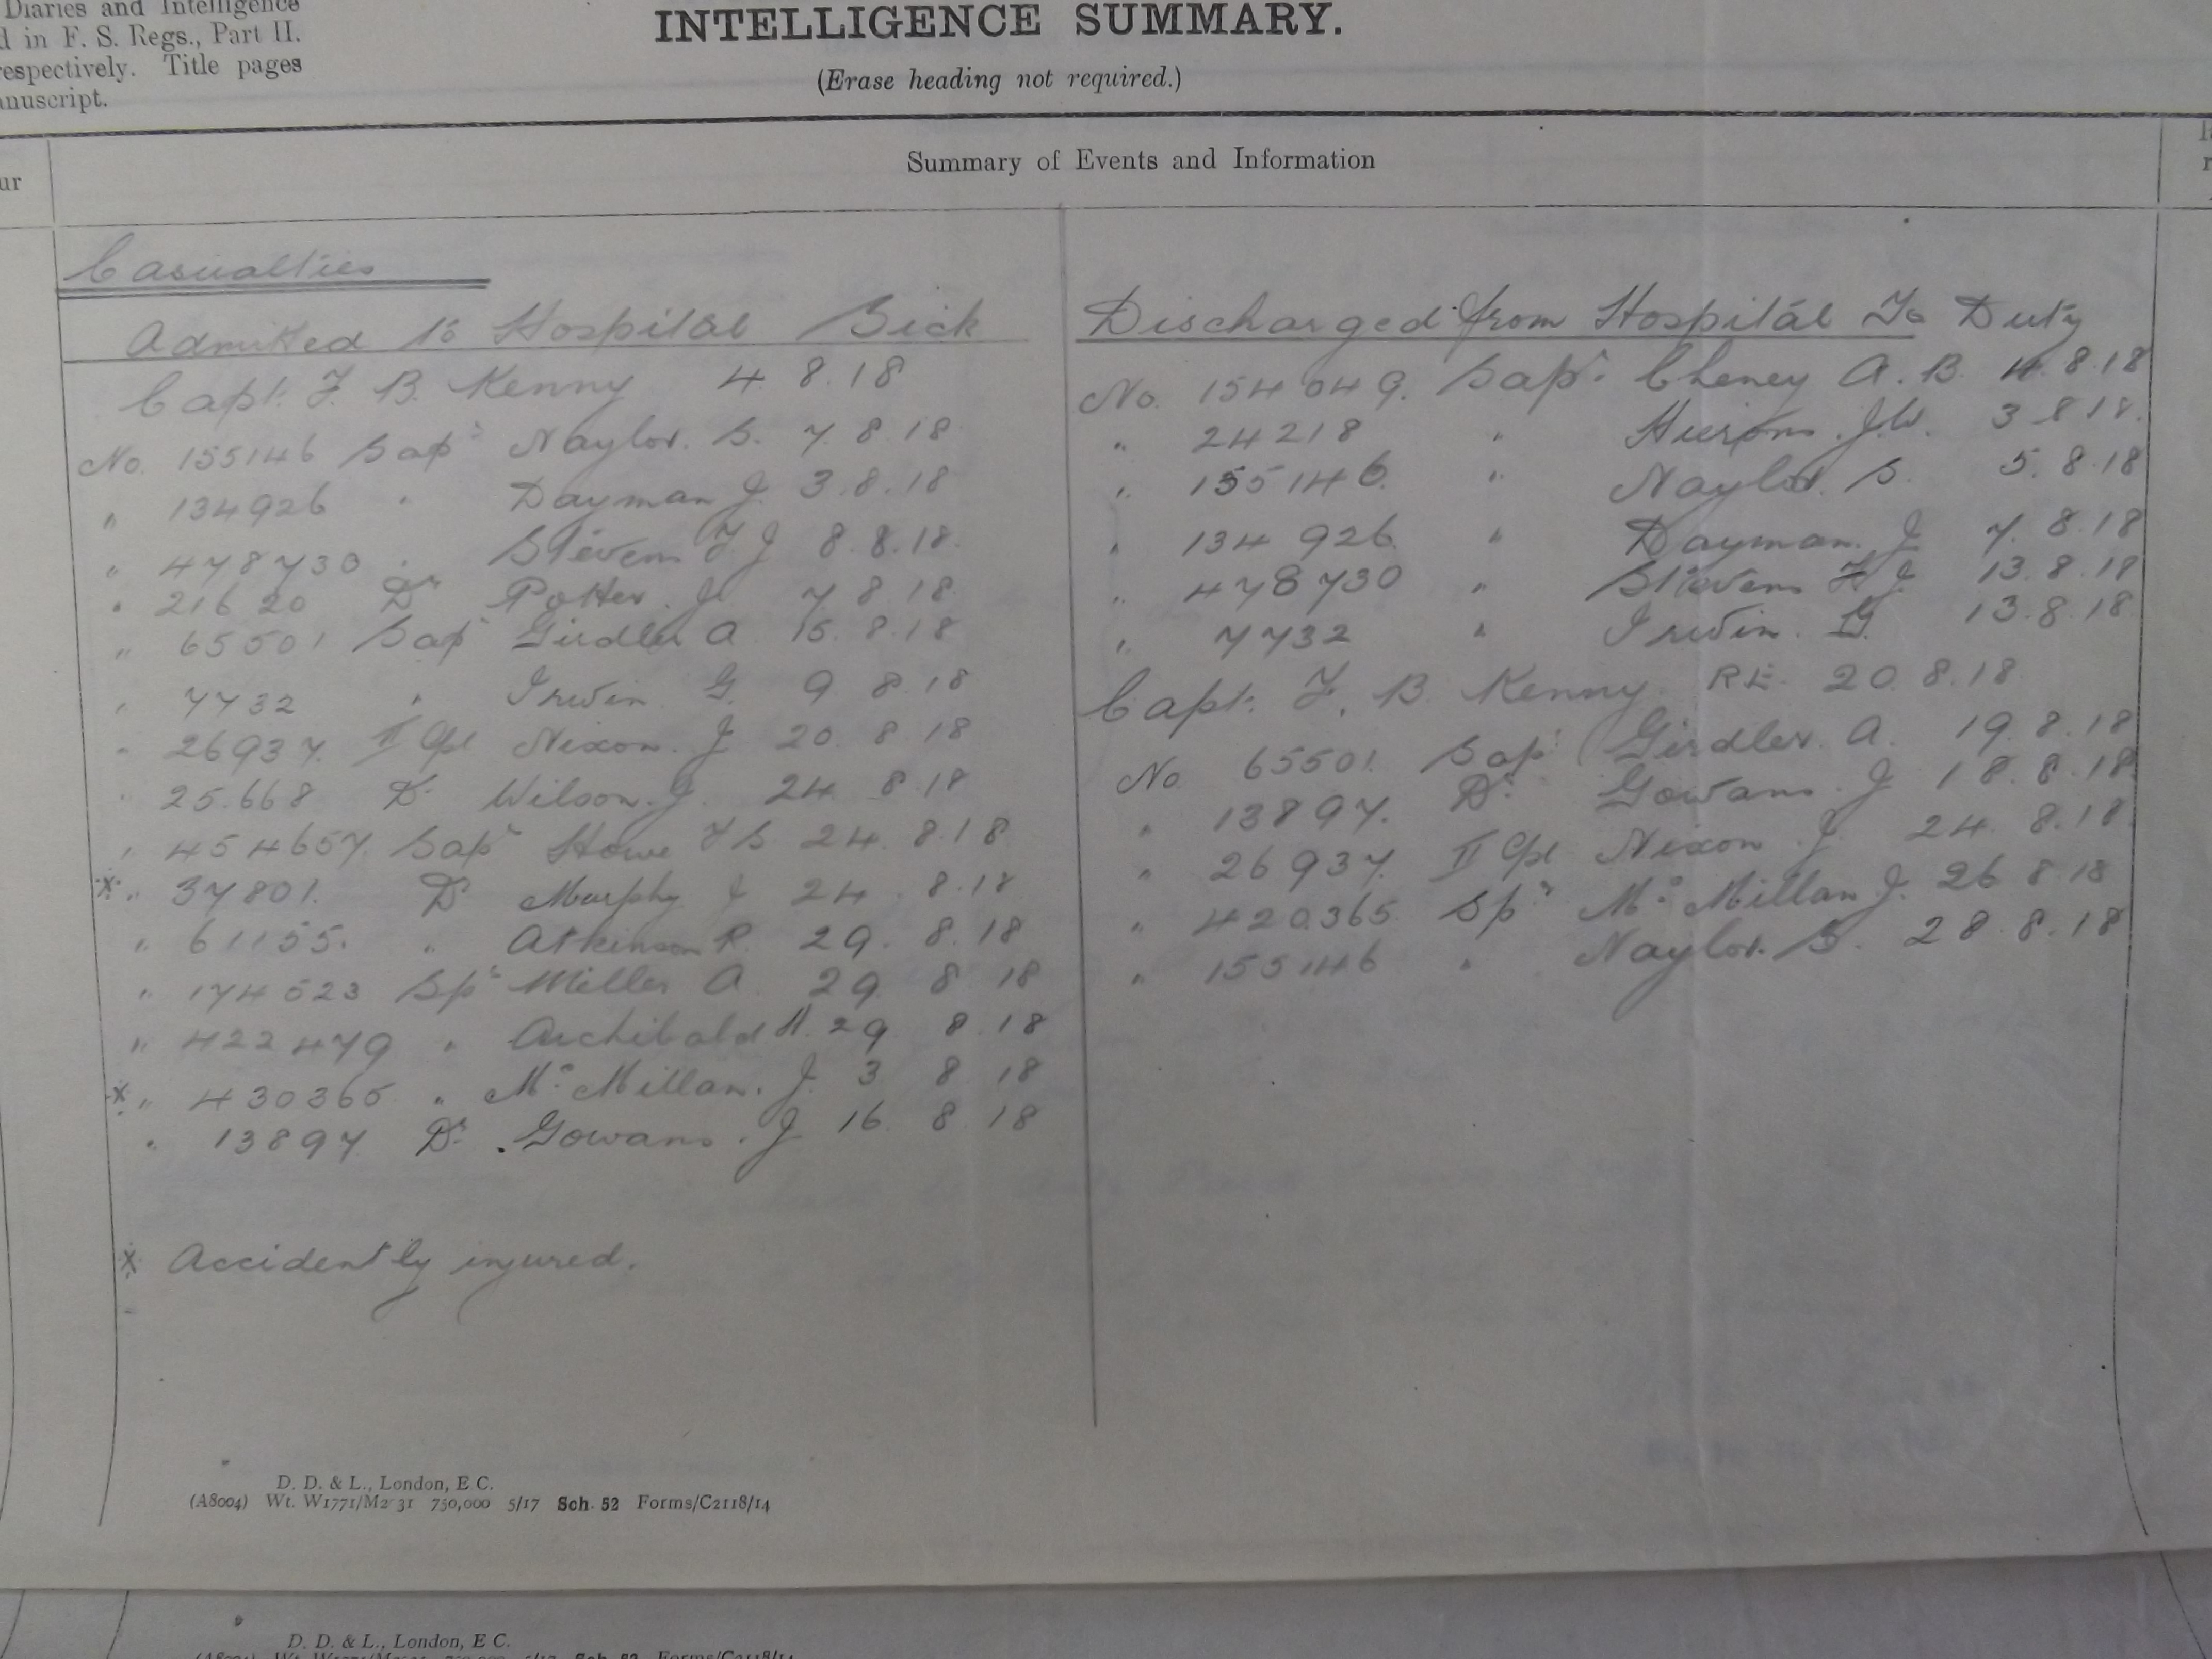 Diaries and Intelligence
d in F. S. Regs., Part II.
respectively. Title pages
anuscript.
INTELLIGENCE SUMMARY.
(Erase heading not required.)
ur
Summary of Events and Information
Casualties
Admitted to Hospital Sick
Capt. F. B. Kenny 4 8.18
No. 155146 Sapr Naylor. S. 7. 8.18
" 134926 " Dayman J. 3.8.18
" 478730 " Stevens F J 8.8.18.
" 21620 Dr Potter. J. 7 8 18.
" 65501 Sapr Girdler A. 15. 8.18
" 7732 " Irwin G. 9 8.18
" 26937. II Cpl Nixon. J 20. 8 18
" 25.668 Dr Wilson. J. 24. 8.18
" 454657. Sapr Howe F S. 24. 8.18
x " 37801. Dr Murphy J 24. 8.18
" 61155. " Atkinson R. 29. 8.18
" 174523 Spr Miller A. 29. 8 18
" 422479 " Archibald H. 29 8.18
x " 430365 " Mc Millan. J. 3 8 18
" 13897 Dr. Gowans. J 16. 8 18
x Accidently injured.
Discharged from Hospital To Duty
No. 154049. Sapr. Cheney A. B. 4.8.18
" 24218 " J.W. 3 8 18.
" 155146. " Naylor. S. 5. 8.18
" 134926. " Dayman. J 7. 8.18
" 478730 " Stevens F. J. 13.8.18
" 7732 " Irwin. G. 13.8.18
Capt. F. B Kenny. RE. 20.8.18
No 65501. Sapr Girdler. A. 19. 8.18
" 13897. Dr. Gowans. J 18. 8.18
" 26937. II Cpl Nixon J. 24. 8.18
" 420365 Spr Mc Millan J. 26 8 18
" 155146 " Naylor. S. 28 8.18
D. D. & L., London, E C.
(A8004) Wt. W1771/M2 31 750,000 5/17 Sch. 52 Forms/C2118/14
D. D. & L., London, E C.